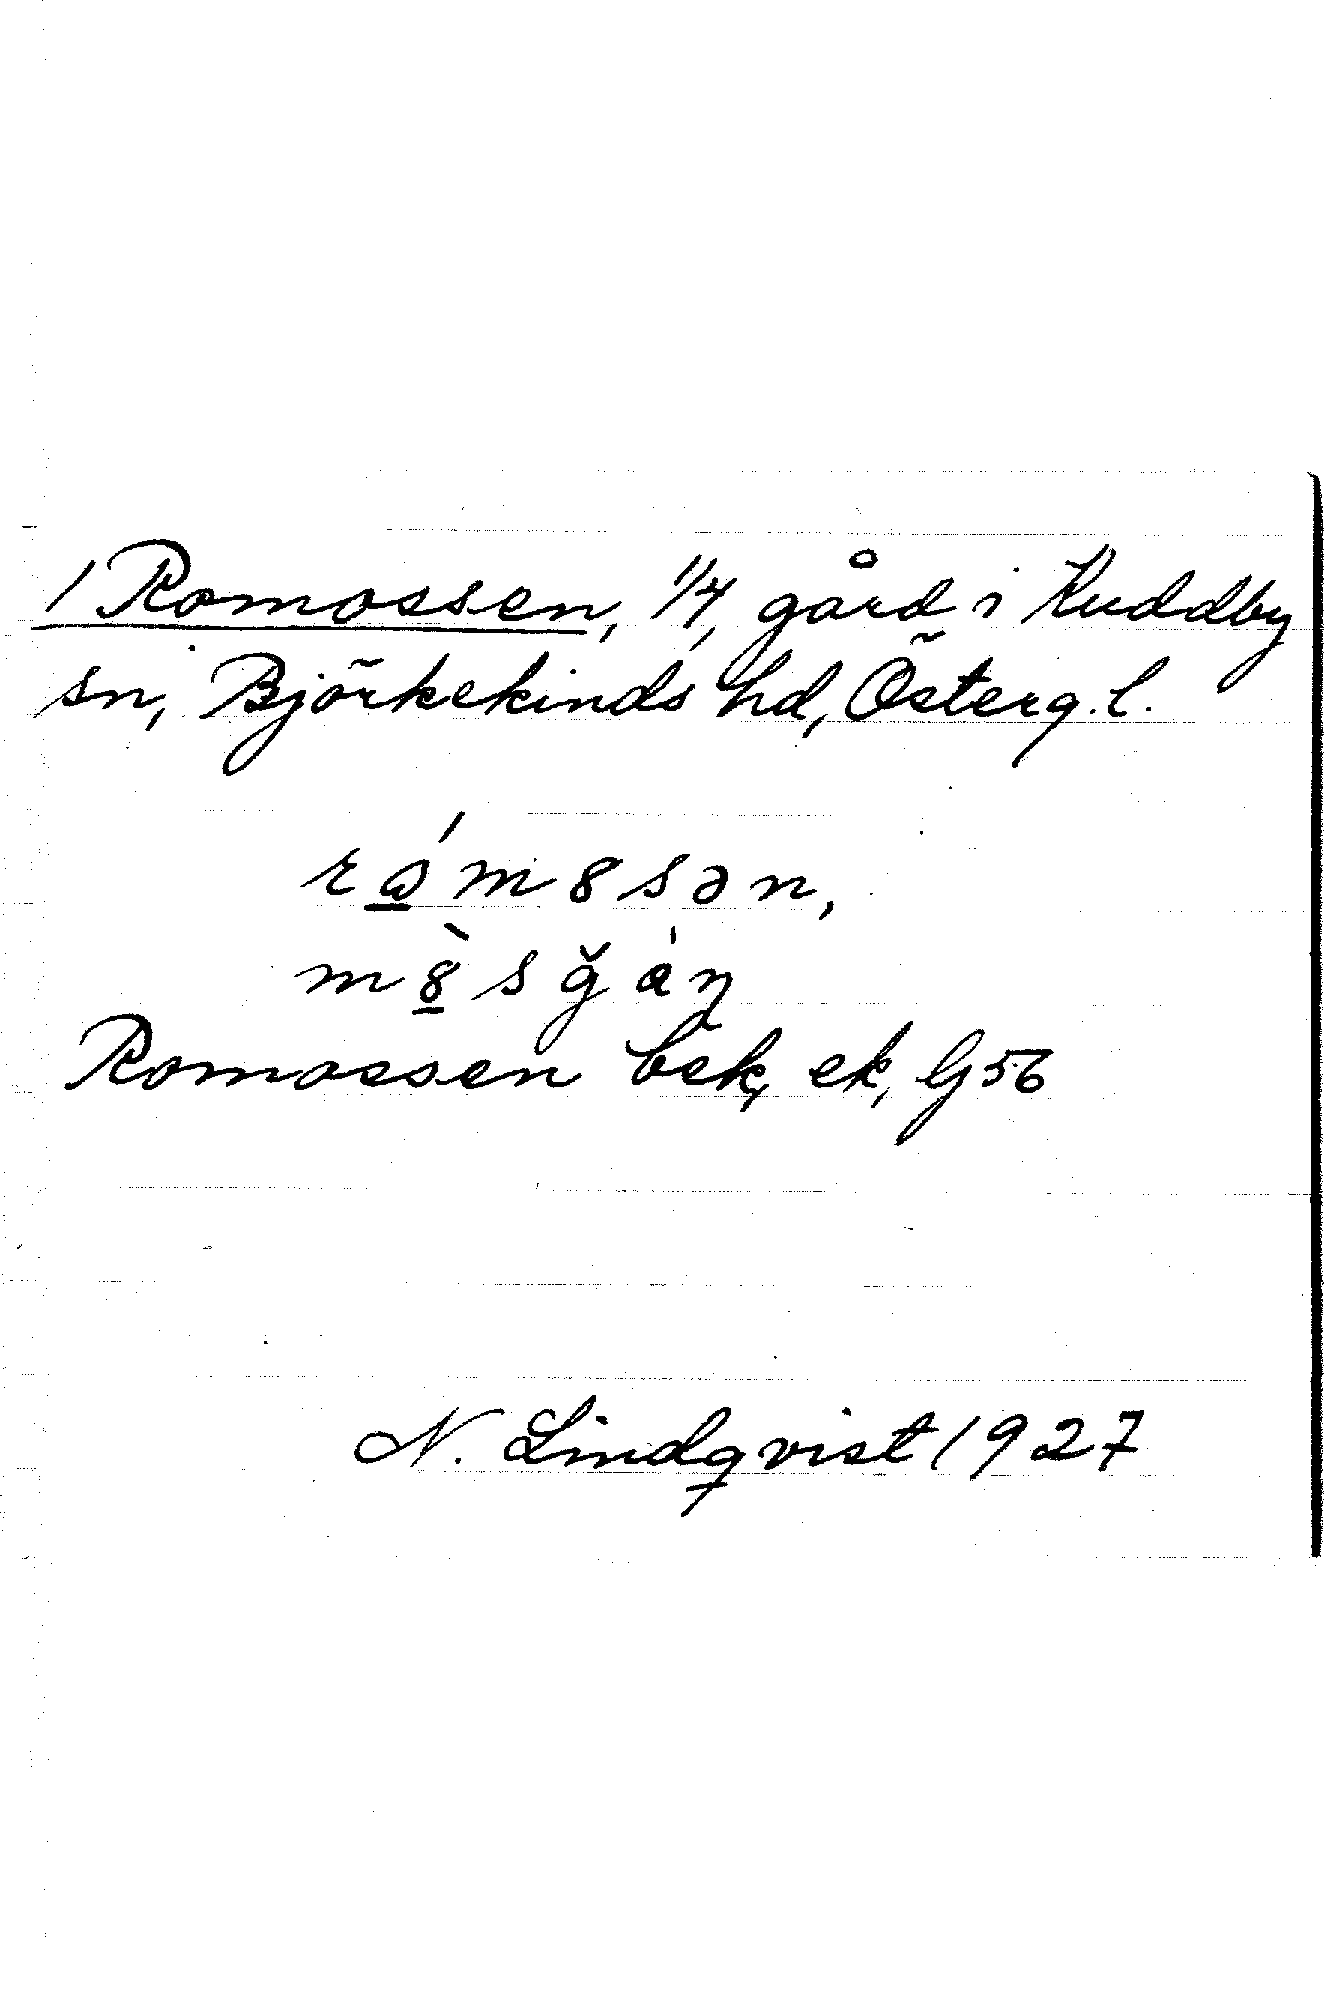 1 Romossen, 1/4, gård i Kuddby
sn, Björkekinds hd, Österg. l.
rώmȣsən,
mȣ̀sğàŋ
Romossen bek, ek, G56
N. Lindqvist 1927